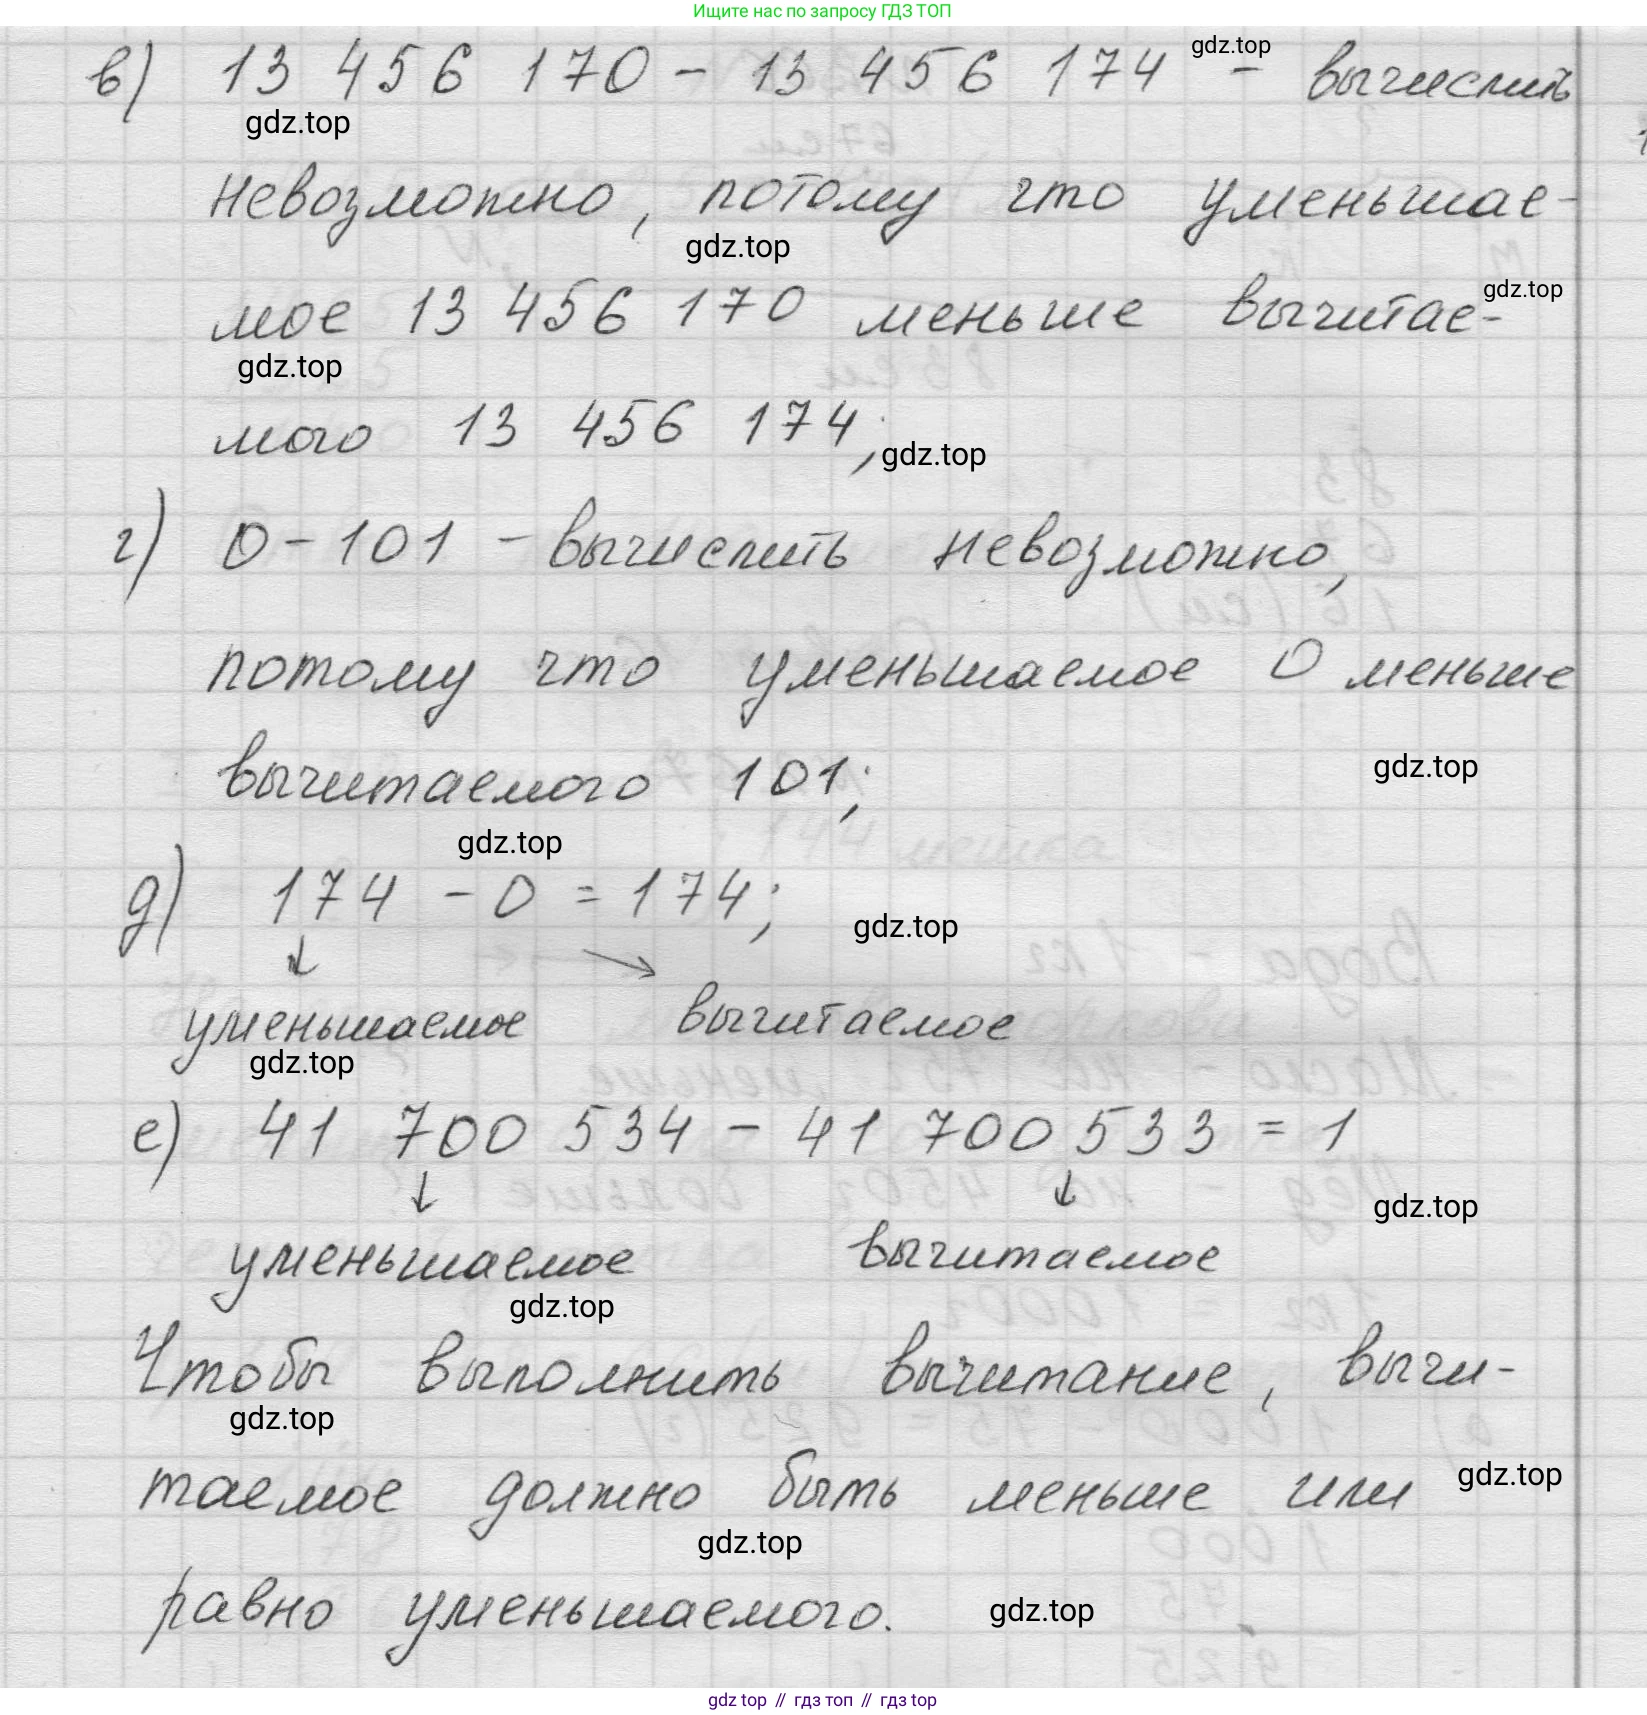 Ищите нас по запросу ГДЗ ТОП
в) 13 456 170 - 13 456 174 - вычислить
gdz.top
gdz.top
невозможно, потому что уменьшае-
gdz.top
мое 13 456 170 меньше вычитае-
gdz.top
gdz.top
мого 13 456 174;
gdz.top
г) 0 - 101 - вычислить невозможно,
потому что уменьшаемое 0 меньше
вычитаемого 101;
gdz.top
gdz.top
д) 174 - 0 = 174;
gdz.top
уменьшаемое вычитаемое
gdz.top
е) 41 700 534 - 41 700 533 = 1
gdz.top
уменьшаемое вычитаемое
gdz.top
Чтобы выполнить вычитание, вычи-
gdz.top
таемое должно быть меньше или
gdz.top
gdz.top
равно уменьшаемого.
gdz.top
gdz top // гдз топ // гдз top